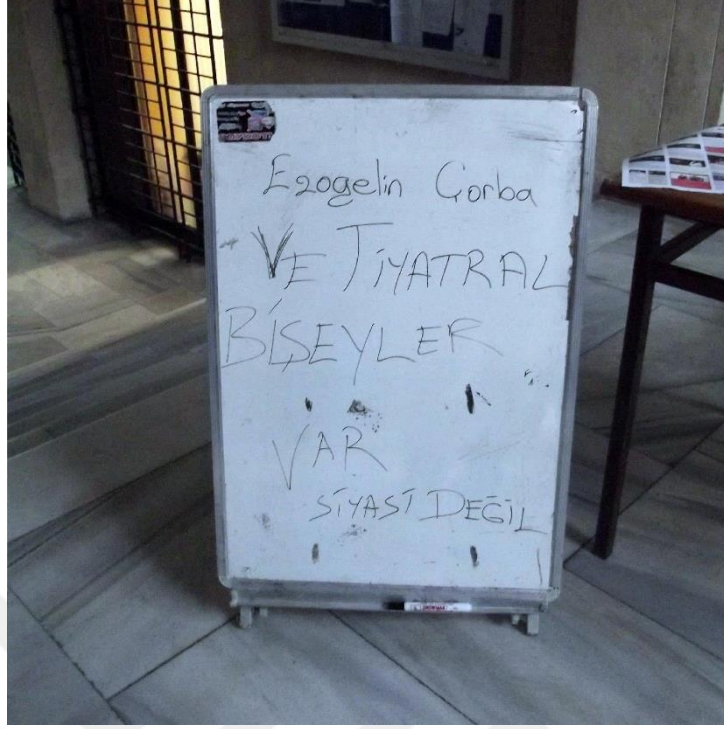 Ezogelin Çorba
VE TİYATRAL
BİŞEYLER
VAR
SİYASİ DEĞİL